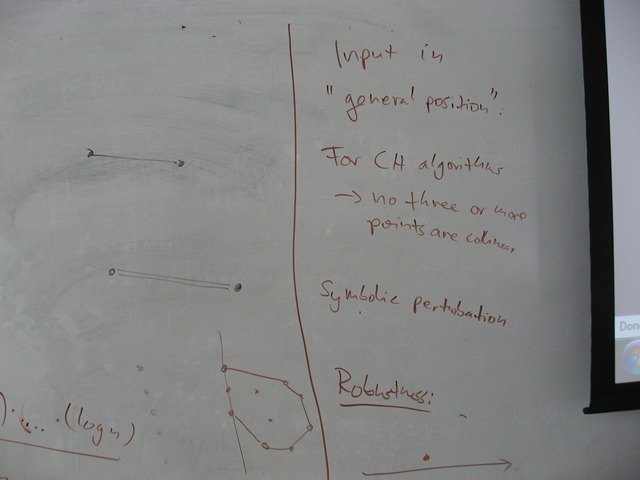 Input in
"general position":
For CH algorithms
→ no three or more
points are collinear
Symbolic perturbation
Robustness:
) . (... . (log n)
Don